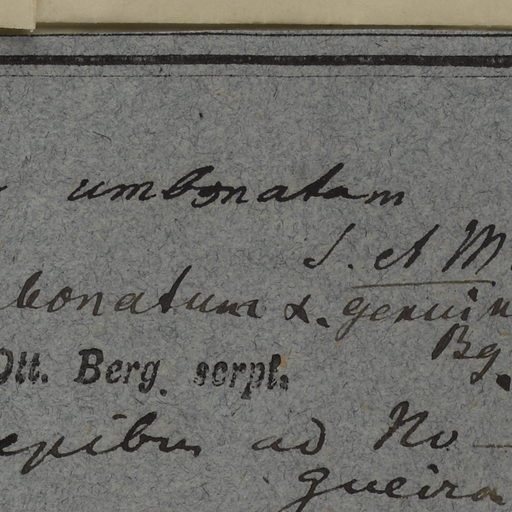 umbonatum
S. et M.
bonatum α. genuin
Bg.
Ott. Berg scrpt.
epibus ad No-
gueira